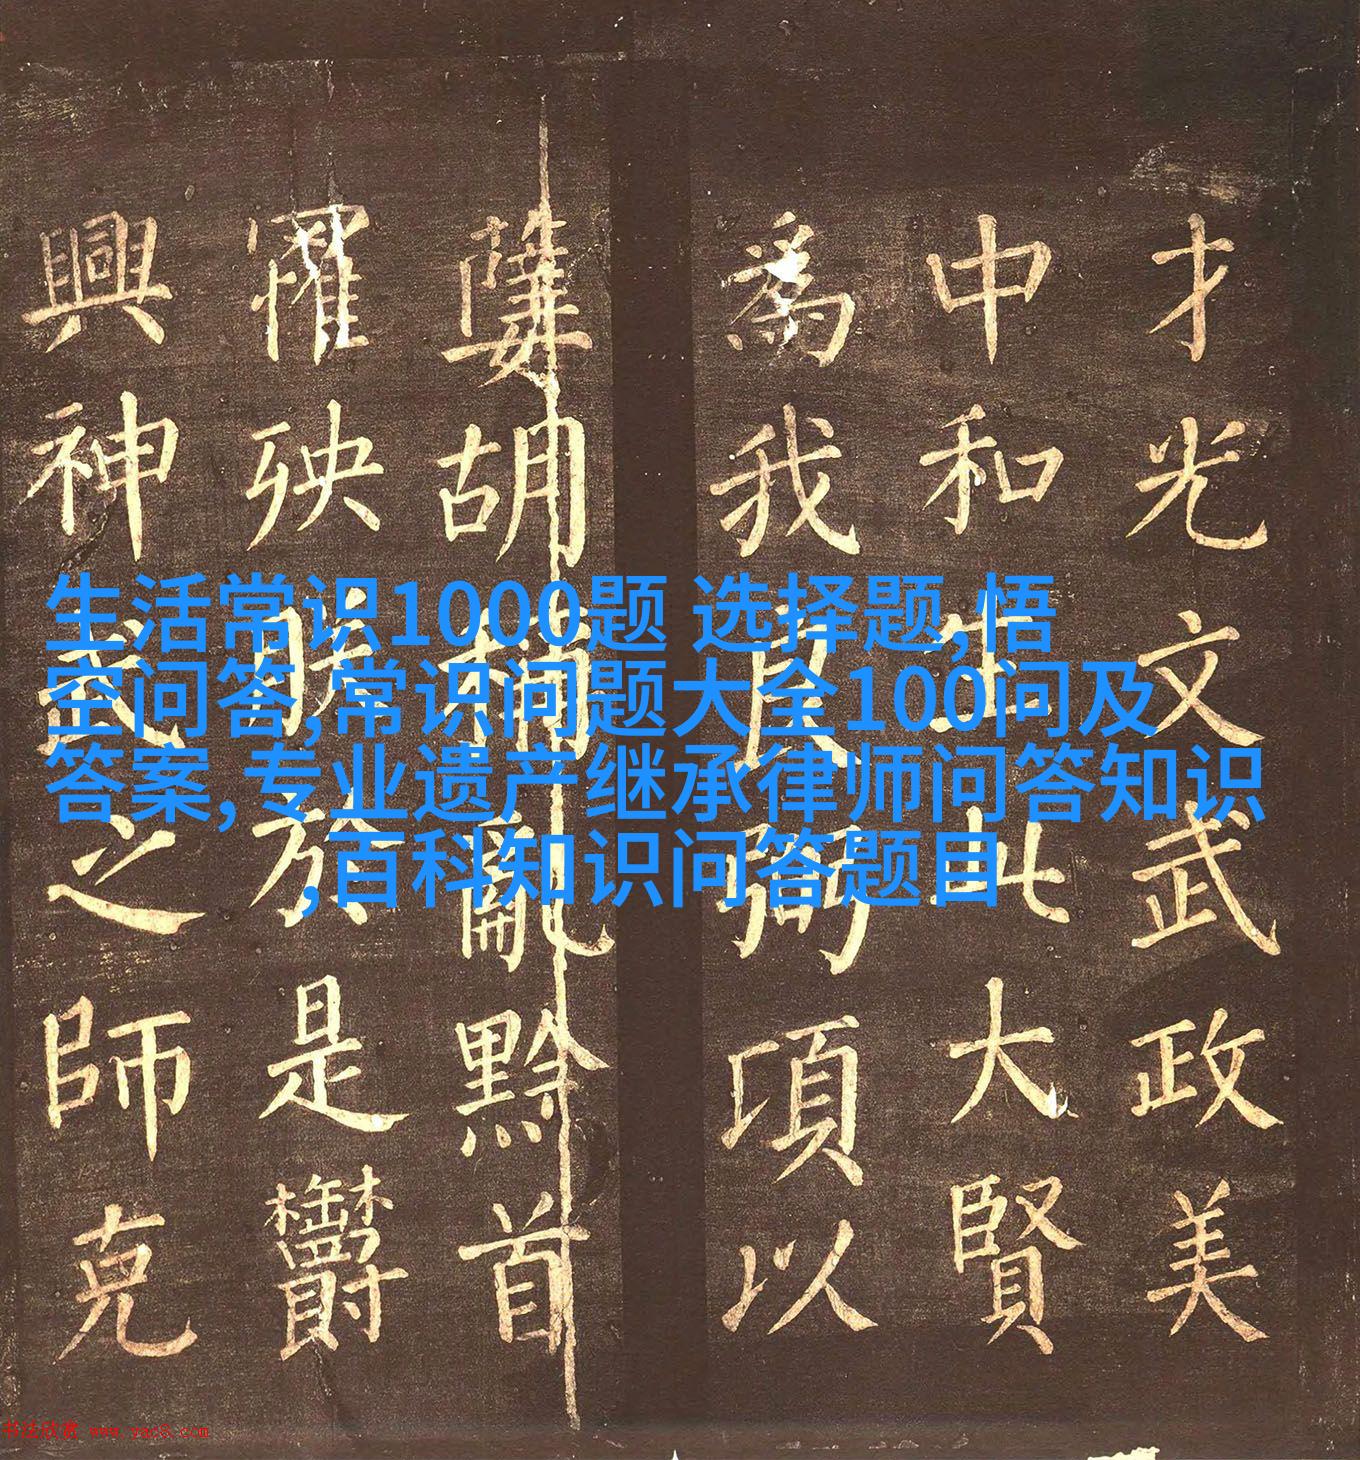 生活常识1000题 选择题,悟
空问答,常识问题大全100问及
答案,专业遗产继承律师问答知识
,百科知识问答题目
才光文武政美
中和生此大賢
爲我良弼項以
胡稱亂黔首
罹殃朕於是鬱
興神武之師克
书法欣赏 www.yac8.com